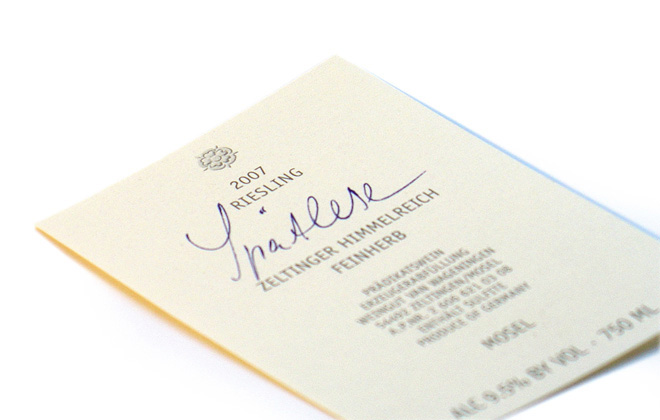 2007
RIESLING
Spätlese
ZELTINGER HIMMELREICH
FEINHERB
PRÄDIKATSWEIN
ERZEUGERABFÜLLUNG
WEINGUT VAN WAGENINGEN
54492 ZELTINGEN/MOSEL
A.P.NR. 2 606 621 03 08
ENTHÄLT SULFITE
PRODUCE OF GERMANY
MOSEL
ALC 9.5% BY VOL - 750 ML